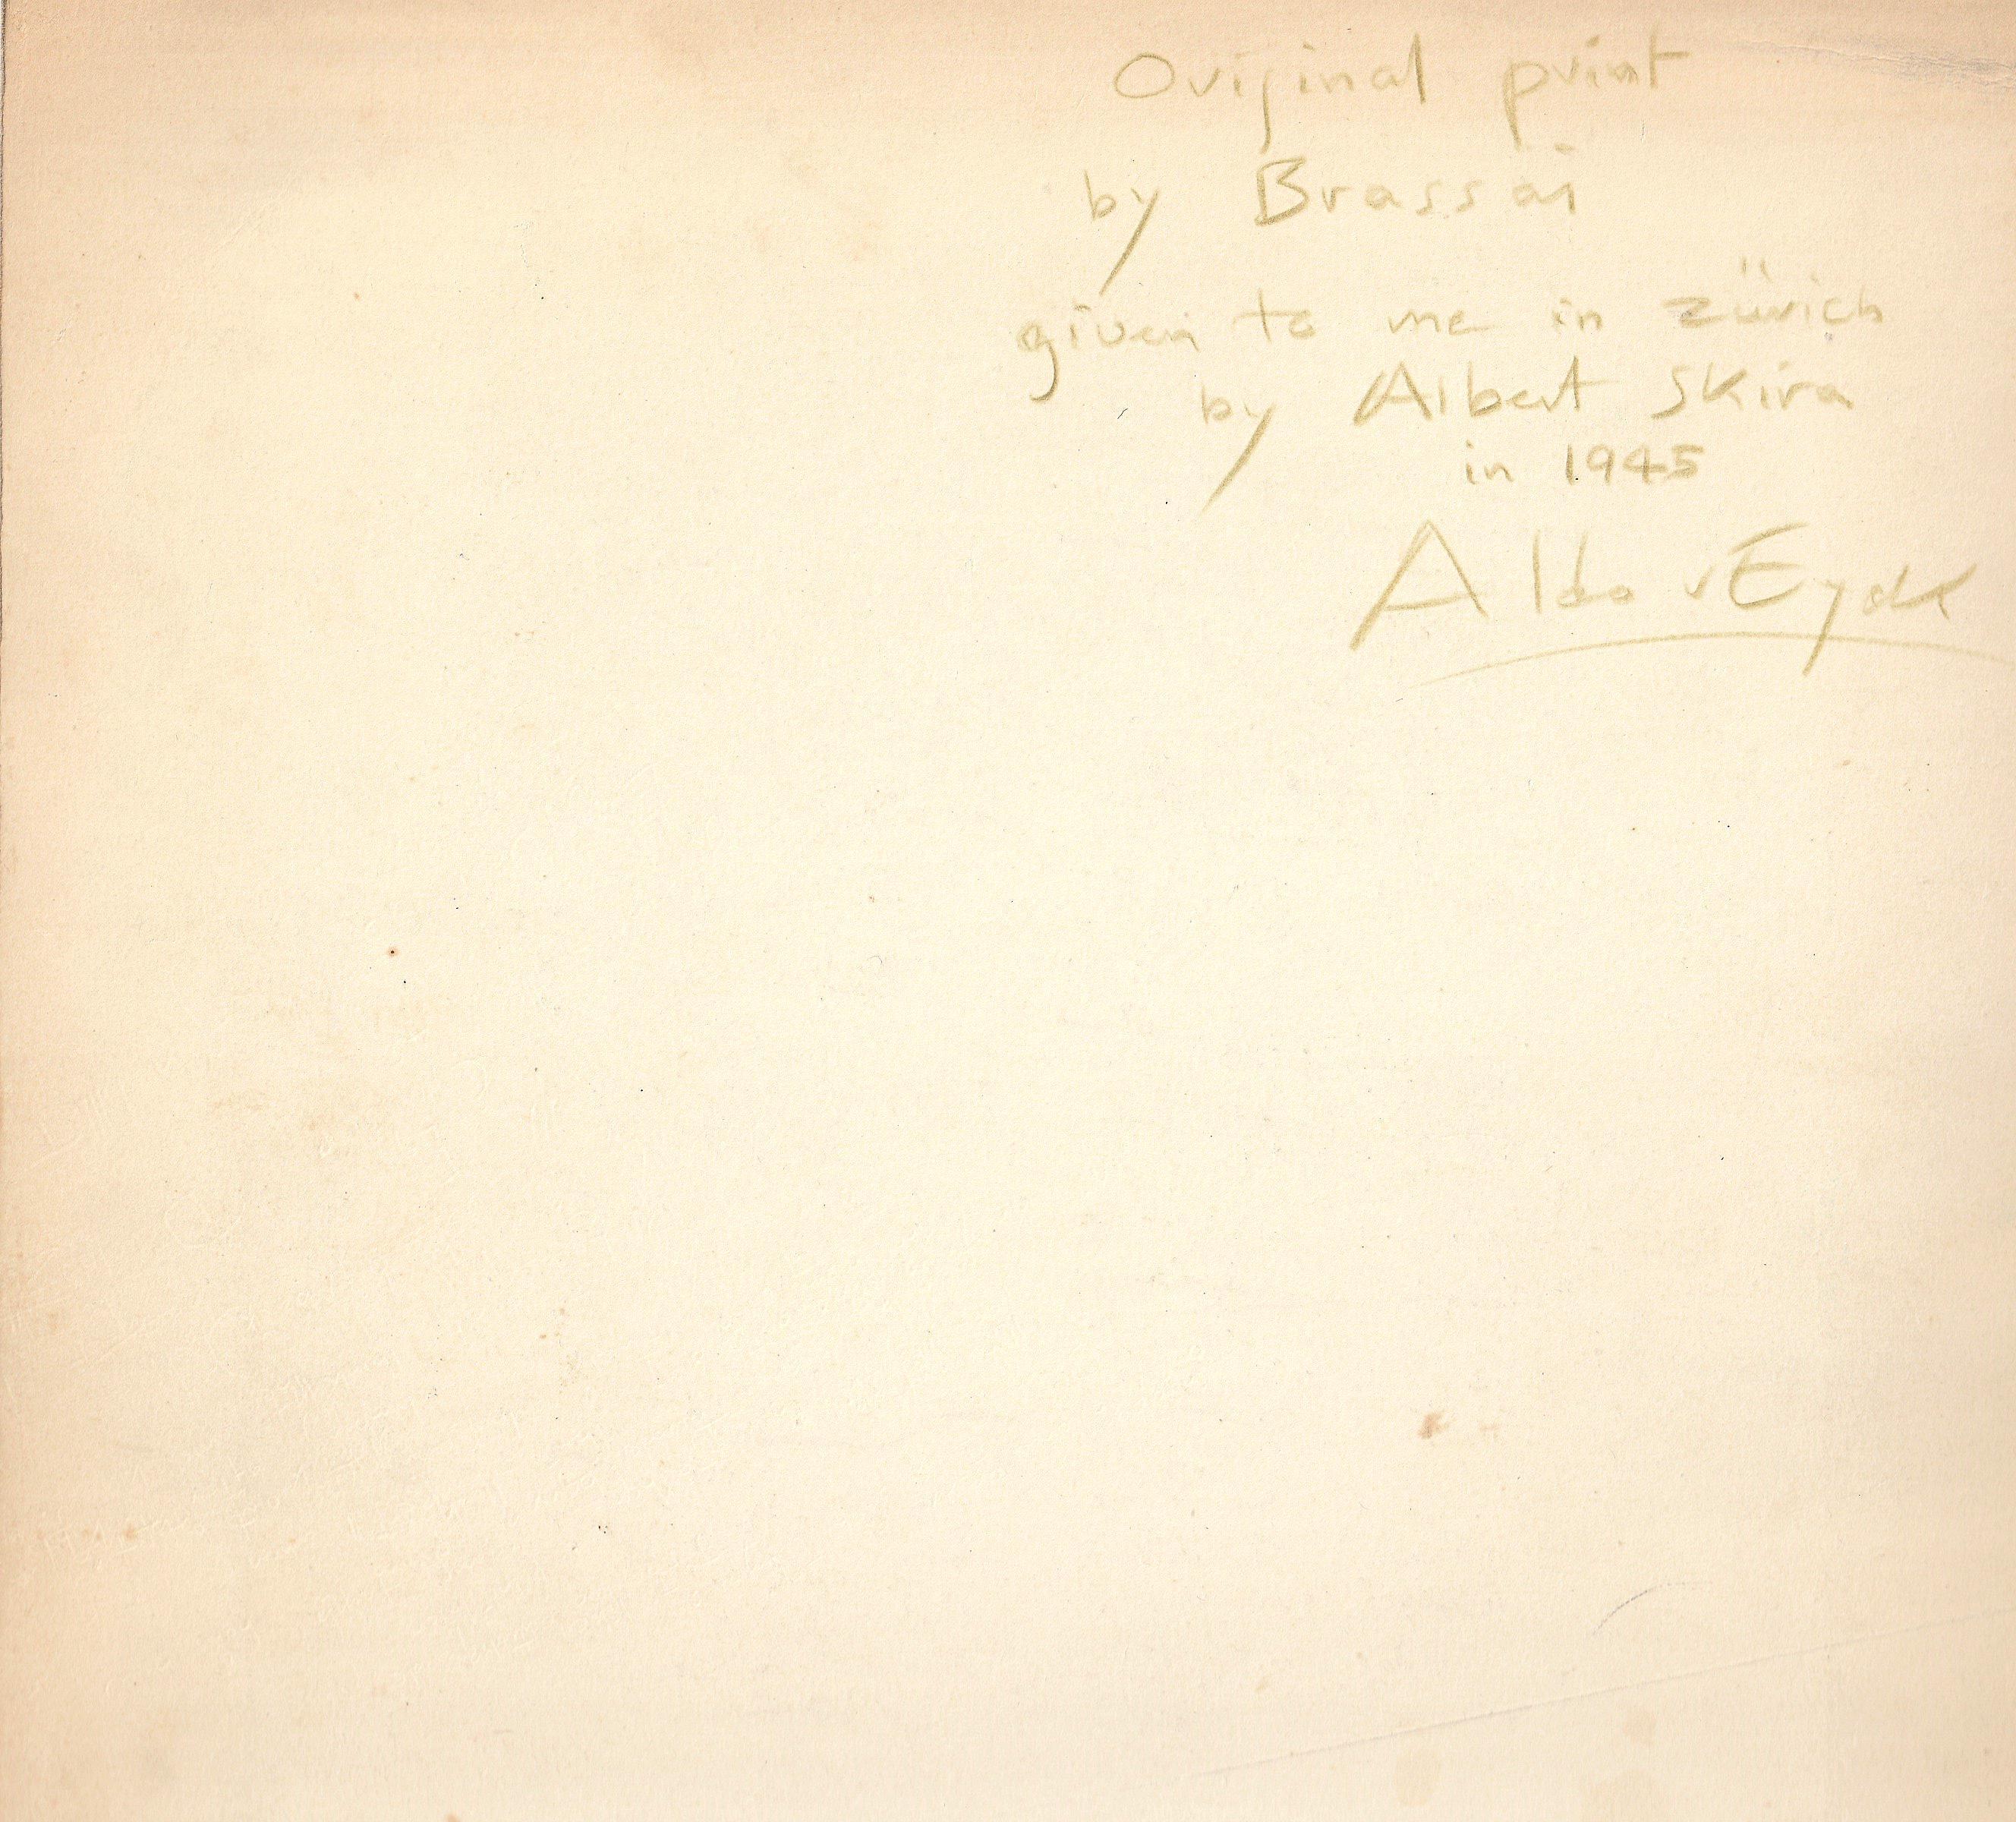 Original print
by Brassaï
given to me in zürich
by Albert Skira
in 1945
Aldo v Eyck